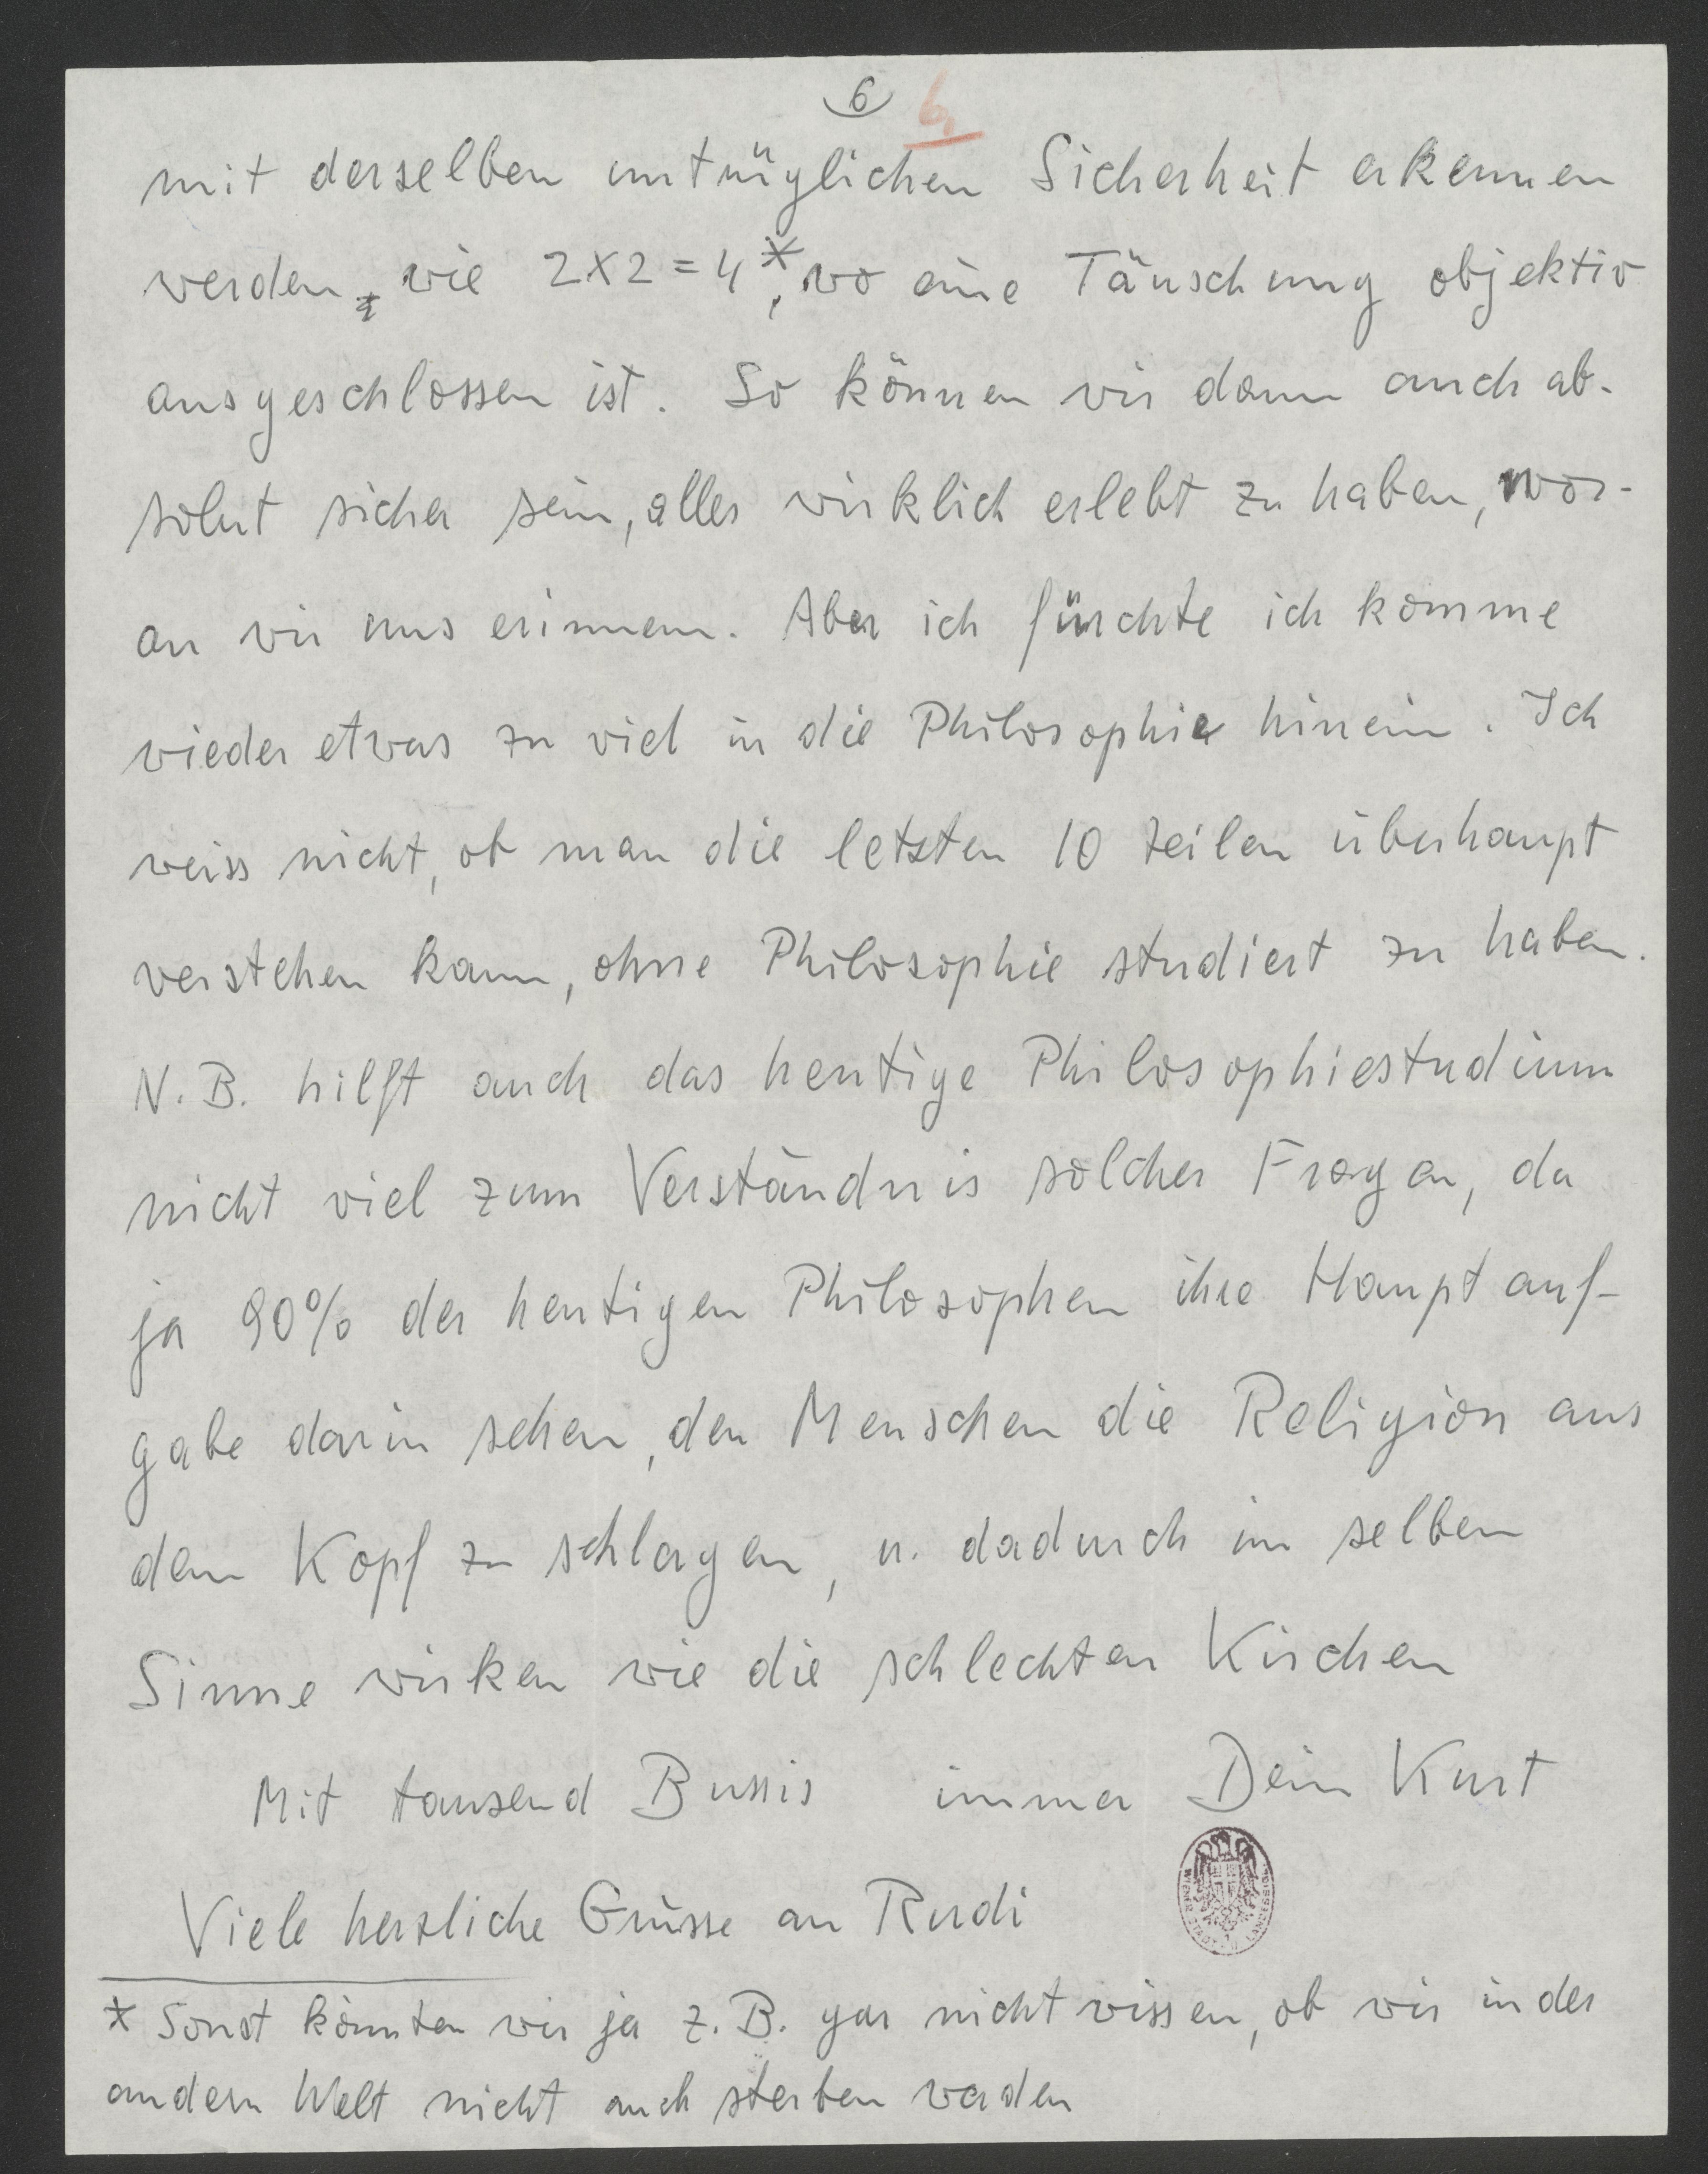 6 6,
mit derselben untrüglichen Sicherheit erkennen
werden, wie 2×2=4*, wo eine Täuschung objektiv
ausgeschlossen ist. So können wir dann auch ab-
solut sicher sein, alles wirklich erlebt zu haben, wor-
an wir uns erinnern. Aber ich fürchte ich komme
wieder etwas zu viel in die Philosophie hinein. Ich
weiss nicht, ob man die letzten 10 Zeilen überhaupt
verstehen kann, ohne Philosophie studiert zu haben.
N.B. hilft auch das heutige Philosophiestudium
nicht viel zum Verständnis solcher Fragen, da
ja 90% der heutigen Philosophen ihre Hauptauf-
gabe darin sehen, den Menschen die Religion aus
dem Kopf zu schlagen, u. dadurch im selben
Sinne wirken wie die schlechten Kirchen
Mit tausend Bussis immer Dein Kurt
Viele herzliche Grüsse an Rudi
* Sonst könnten wir ja z.B. gar nicht wissen, ob wir in der
andern Welt nicht auch sterben werden